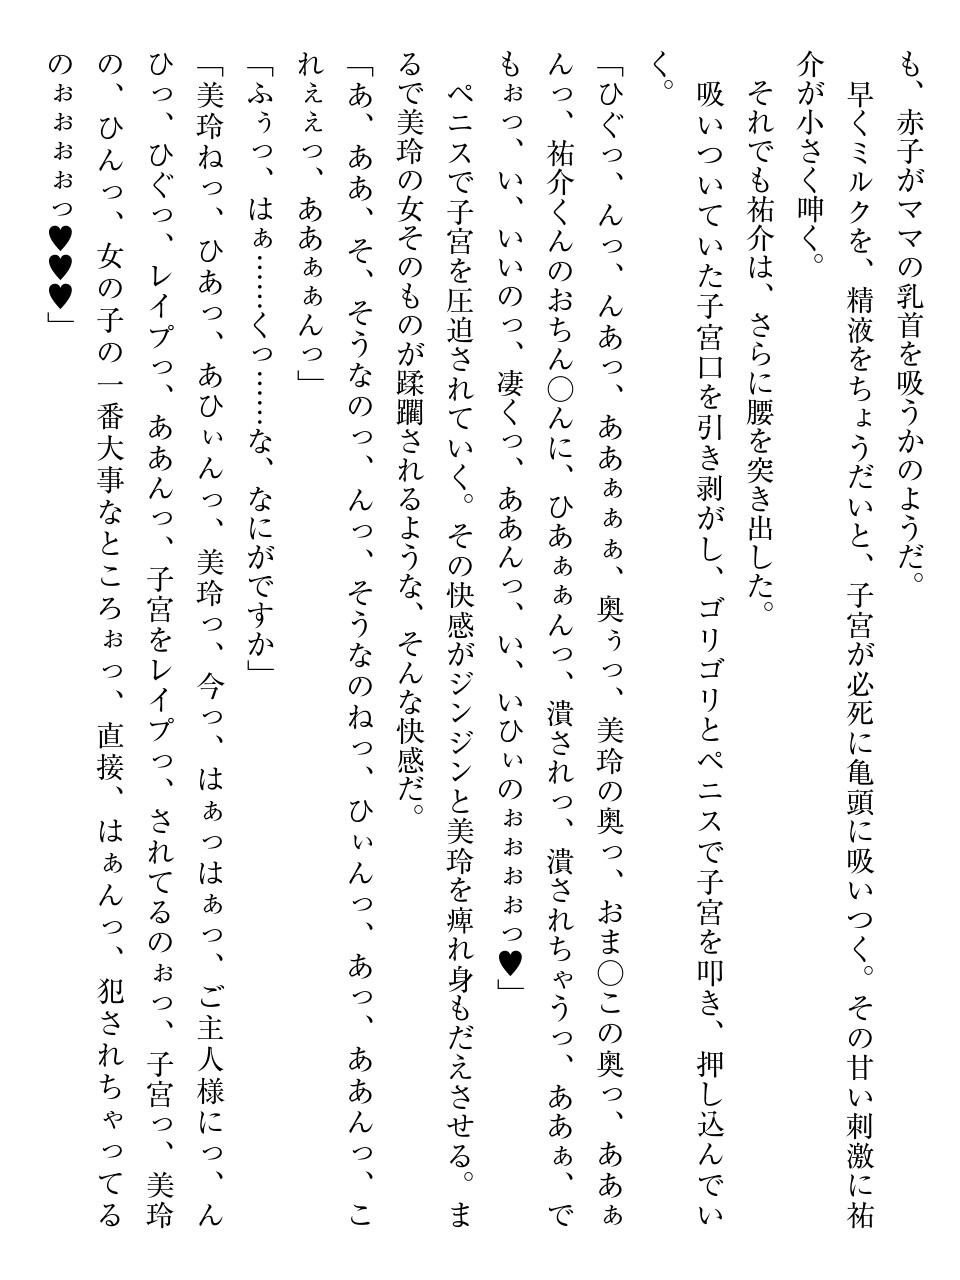 も、赤子がママの乳首を吸うかのようだ。
早くミルクを、精液をちょうだいと、子宮が必死に亀頭に吸いつく。その甘い刺激に祐
介が小さく呻く。
それでも祐介は、さらに腰を突き出した。
吸いついていた子宮口を引き剥がし、ゴリゴリとペニスで子宮を叩き、押し込んでい
く。
「ひぐっ、んっ、んあっ、ああぁぁぁ、奥ぅっ、美玲の奥っ、おま◯この奥っ、ああぁ
んっ、祐介くんのおちん◯んに、ひあぁぁんっ、潰されっ、潰されちゃうっ、ああぁ、で
もぉっ、い、いいのっ、凄くっ、ああんっ、い、いひぃのぉぉぉぉっ♥」
ペニスで子宮を圧迫されていく。その快感がジンジンと美玲を痺れ身もだえさせる。ま
るで美玲の女そのものが蹂躙されるような、そんな快感だ。
「あ、ああ、そ、そうなのっ、んっ、そうなのねっ、ひぃんっ、あっ、ああんっ、こ
れぇぇっ、ああぁぁんっ」
「ふぅっ、はぁ……くっ……な、なにがですか」
「美玲ねっ、ひあっ、あひぃんっ、美玲っ、今っ、はぁっはぁっ、ご主人様にっ、ん
ひっ、ひぐっ、レイプっ、ああんっ、子宮をレイプっ、されてるのぉっ、子宮っ、美玲
の、ひんっ、女の子の一番大事なところぉっ、直接、はぁんっ、犯されちゃってる
のぉぉぉぉっ♥♥♥」